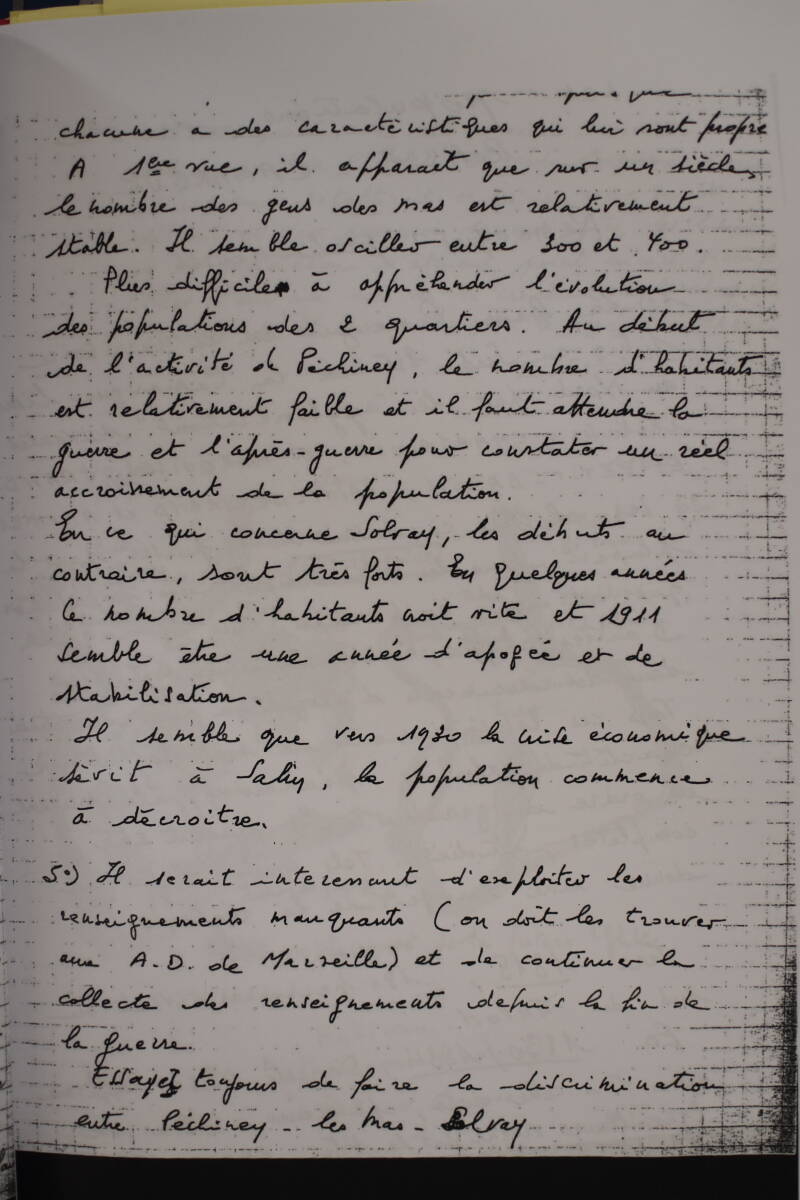 chacune a des caractéristiques qui lui sont propre
A 1ère vue, il apparait que sur un siècle,
le nombre des gens des mas est relativement
stable. Il semble osciller entre 300 et 400.
Plus difficile à appréhender l'évolution
des populations des 2 quartiers. Au début
de l'activité de Péchiney, le nombre d'habitants
est relativement faible et il faut attendre la
guerre et l'après-guerre pour constater un réel
accroissement de la population.
En ce qui concerne Solvay, les débuts au
contraire, sont très forts. En quelques années
le nombre d'habitants croit vite et 1911
semble être une année d'apogée et de
stabilisation.
Il semble que vers 1930 la crise économique
sévit à Salin, la population commence
à décroitre.
5°) Il serait interessant d'exploiter les
renseignements manquants (on doit les trouver
aux A.D. de Marseille) et de continuer la
collecte des renseignements depuis la fin de
la guerre.
Essayez toujours de faire la discrimination
entre Péchiney - les mas - Solvay